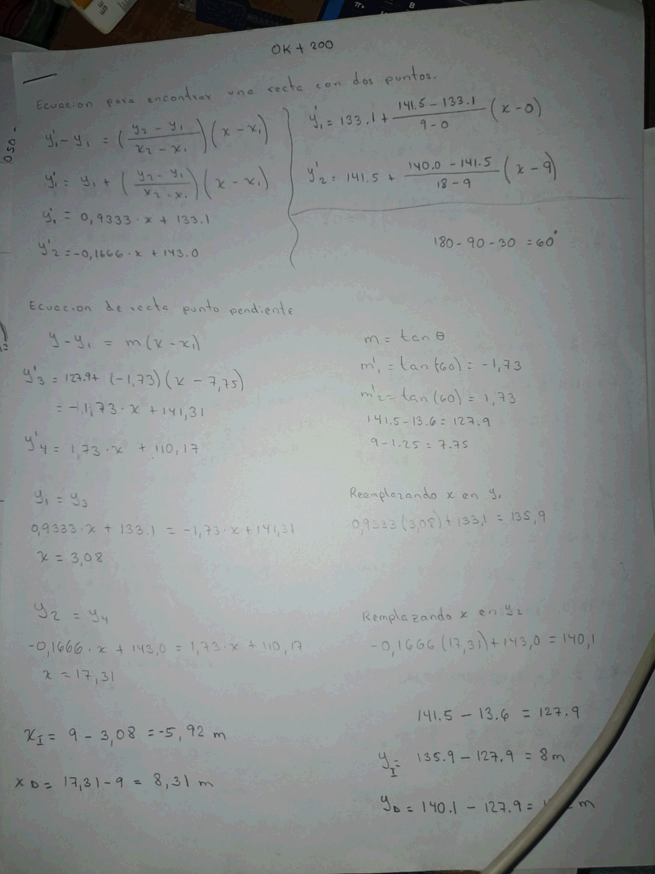 OK + 200
Ecuacion para encontrar una recta con dos puntos.
y'₁ - y₁ = ( (y₂ - y₁) / (x₂ - x₁) ) (x - x₁)
y'₁ = y₁ + ( (y₂ - y₁) / (x₂ - x₁) ) (x - x₁)
y'₁ = 0,9333·x + 133.1
y'₂ = -0,1666·x + 143.0
y'₁ = 133.1 + (141.5 - 133.1) / (9 - 0) (x - 0)
y'₂ = 141.5 + (140.0 - 141.5) / (18 - 9) (x - 9)
180 - 90 - 30 = 60°
Ecuacion de recta punto pendiente
y - y₁ = m (x - x₁)
y'₃ = 127.9 + (-1,73) (x - 7,75)
= -1,73·x + 141,31
y'₄ = 1,73·x + 110,17
m = tan θ
m'₁ = tan(-60) = -1,73
m'₂ = tan(60) = 1,73
141.5 - 13.6 = 127.9
9 - 1.25 = 7.75
y₁ = y₃
0,9333·x + 133.1 = -1,73·x + 141,31
x = 3,08
Reemplazando x en y₁
0,9333(3,08) + 133,1 = 135,9
y₂ = y₄
-0,1666·x + 143,0 = 1,73·x + 110,17
x = 17,31
Remplazando x en y₂
-0,1666(17,31) + 143,0 = 140,1
x_I = 9 - 3,08 = -5,92 m
x_D = 17,31 - 9 = 8,31 m
141.5 - 13.6 = 127.9
y_I = 135.9 - 127.9 = 8m
y_D = 140.1 - 127.9 = m
050